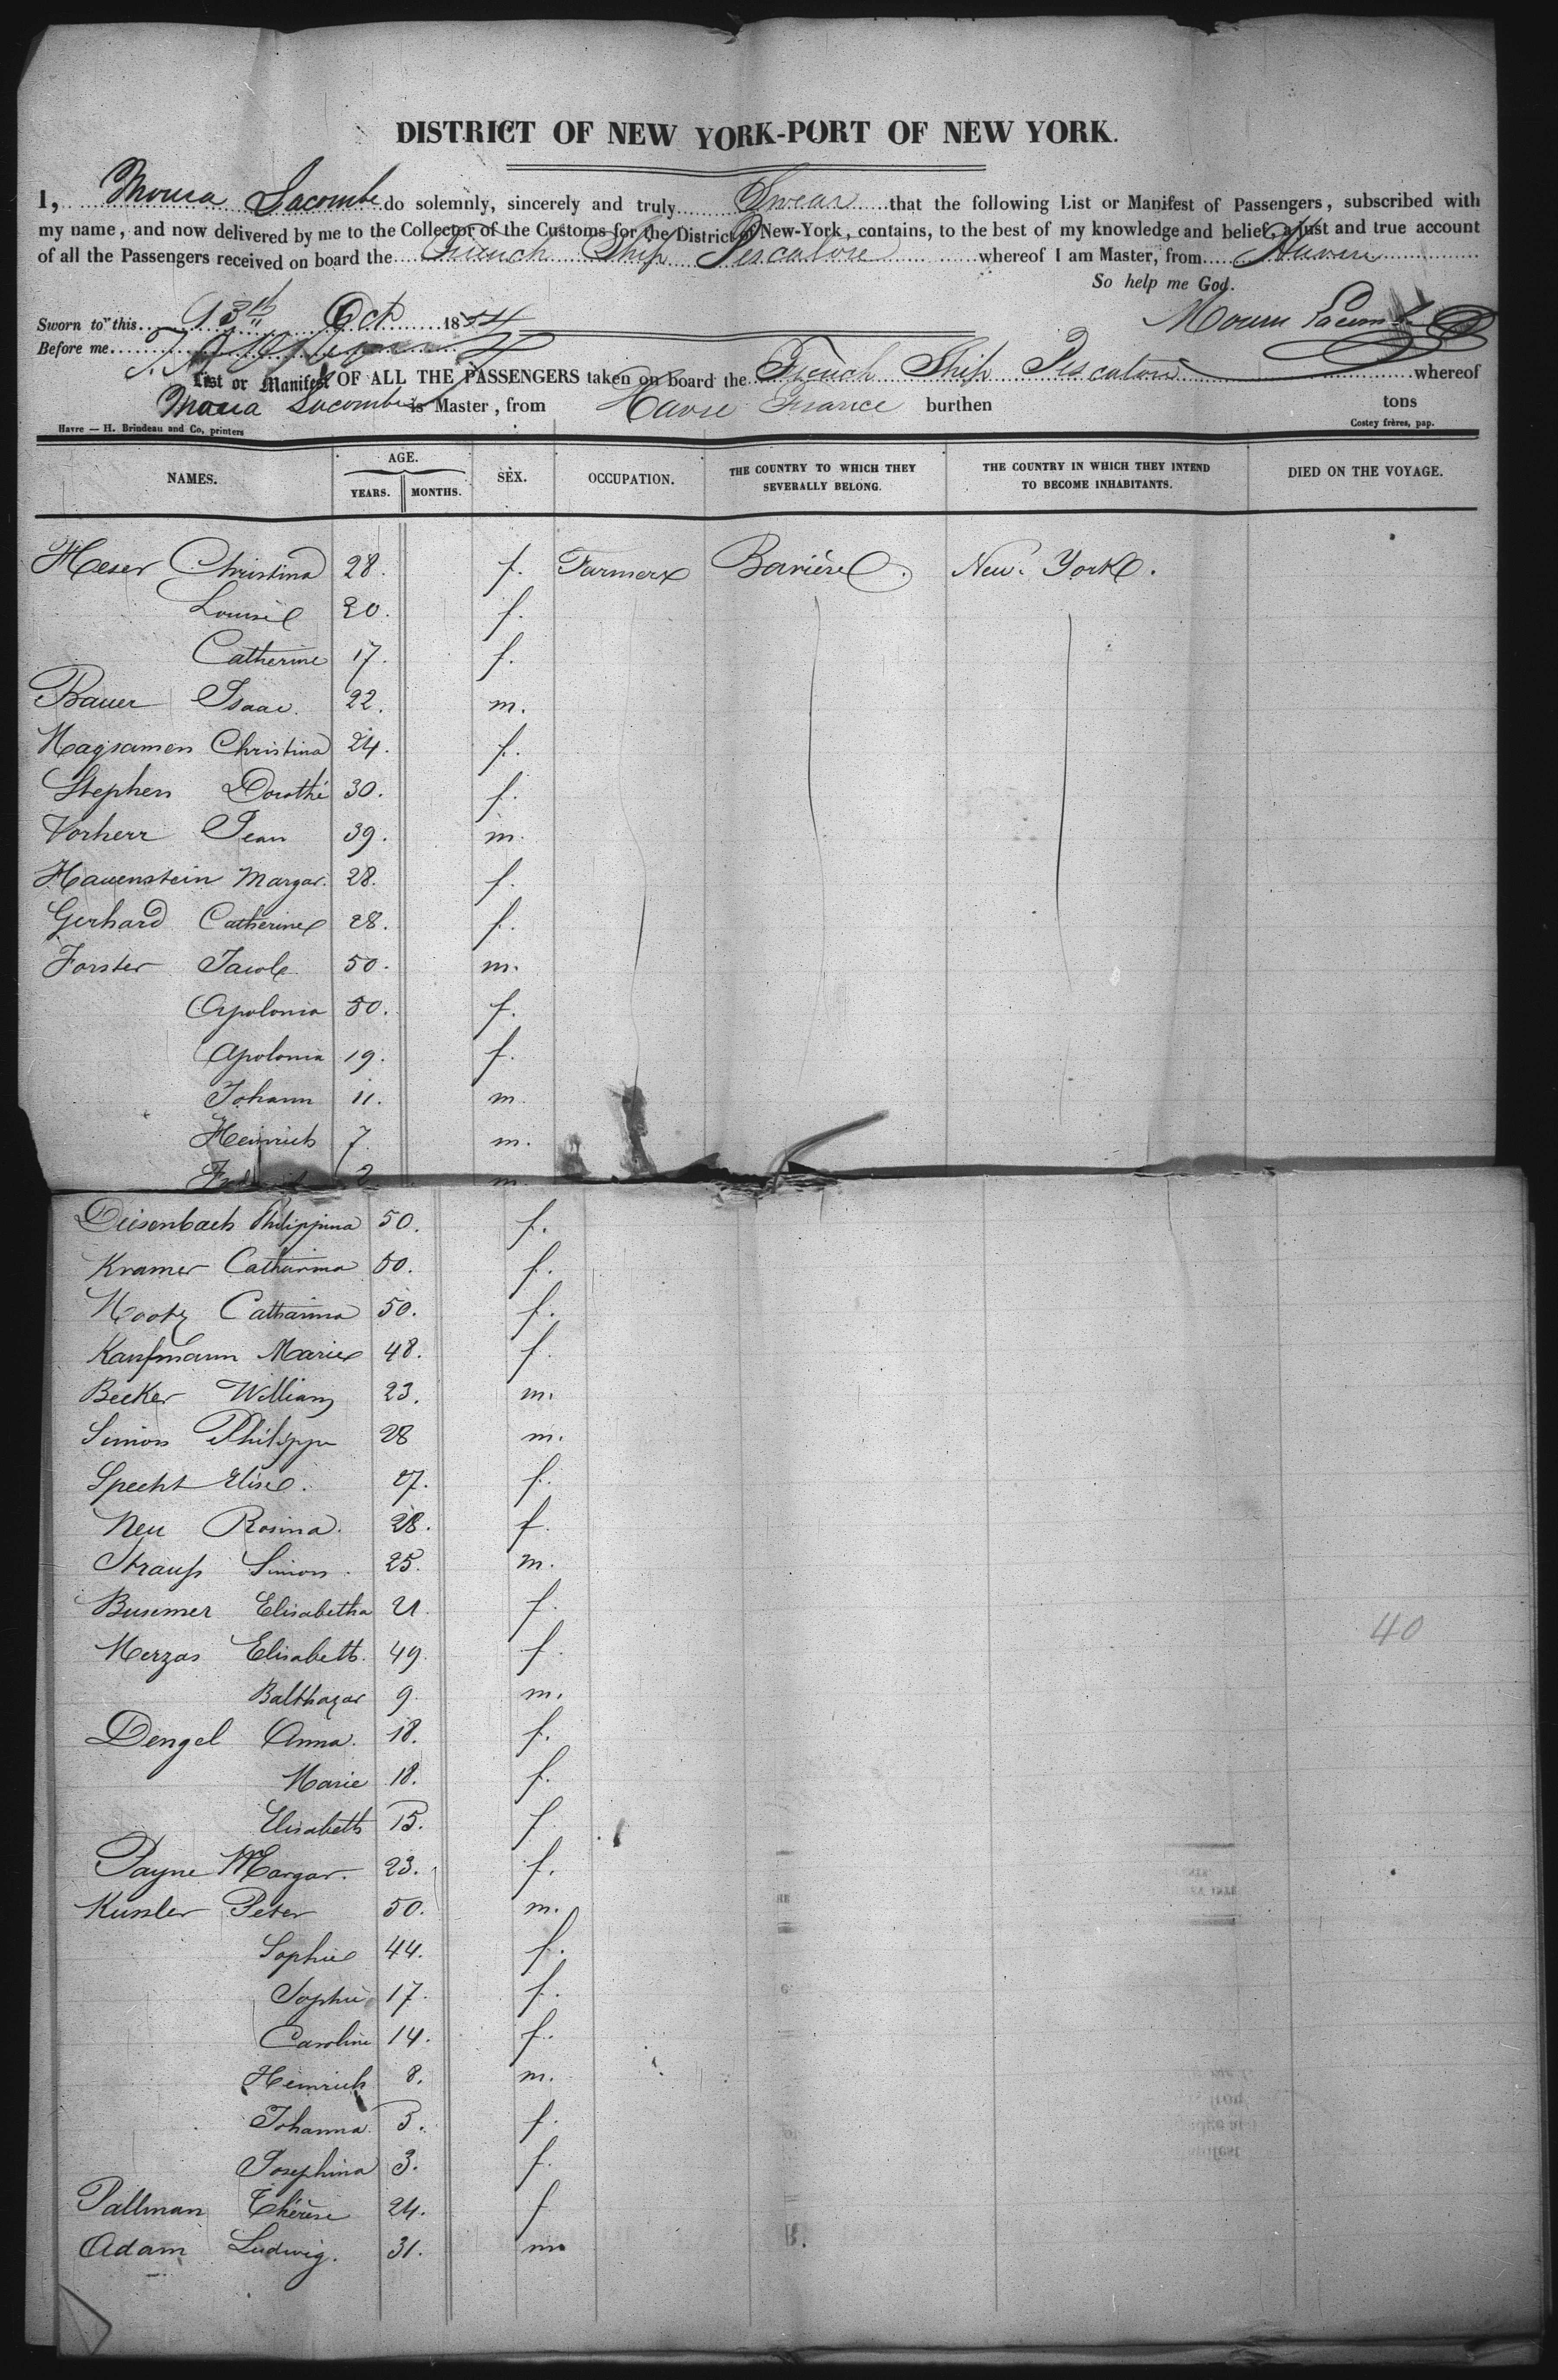 DISTRICT OF NEW YORK-PORT OF NEW YORK.
I, Lacombe do solemnly, sincerely and truly Swear that the following List or Manifest of Passengers, subscribed with
my name, and now delivered by me to the Collector of the Customs for the District of New-York, contains, to the best of my knowledge and belief, a just and true account
of all the Passengers received on board the French Ship Pescatore whereof I am Master, from Havre
So help me God.
Sworn to this Oct 1854
Before me
List or Manifest OF ALL THE PASSENGERS taken on board the French Ship Pescatore whereof
Lacombe is Master, from Havre France burthen tons
Havre — H. Brindeau and Co, printers
Costey frères, pap.
NAMES. AGE. YEARS. MONTHS. SEX. OCCUPATION. THE COUNTRY TO WHICH THEY SEVERALLY BELONG. THE COUNTRY IN WHICH THEY INTEND TO BECOME INHABITANTS. DIED ON THE VOYAGE.
Heser Christina 28. f. Farmer Bavière. New-York.
Louise 20. f.
Catherine 17. f.
Bauer Isaac 22. m.
Magsamen Christina 24. f.
Stephen Dorothé 30. f.
Vorherr Jean 39. m.
Hauenstein Margar. 28. f.
Gerhard Catherine 28. f.
Forster Jacob 50. m.
Apolonia 50. f.
Apolonia 19. f.
Johann 11. m.
Heinrich 7. m.
2 m.
Deisenbach Philippina 50. f.
Kramer Catharina 50. f.
Catharina 50. f.
Kaufmann Marie 48. f.
Becker William 23. m.
Simon Philippe 28 m.
Specht Elise. 27. f.
Neu Rosina. 28. f.
Strauss Simon. 25. m.
Busemer Elisabetha 21. f.
Merzas Elisabeth. 49. f.
Balthazar 9. m.
Dengel Anna. 18. f.
Marie 18. f.
Elisabeth 15. f.
Payne Margar. 23. f.
Kussler Peter 50. m.
Sophie 44. f.
Sophie 17. f.
Caroline 14. f.
Heinrich 8. m.
Johanna 3. f.
Josephina 3. f.
Pallman Thérèse 24. f
Adam Ludwig. 31. m
40